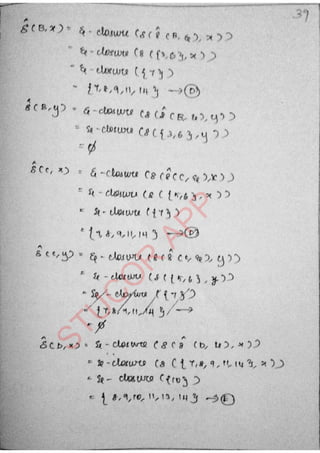 39
δ̂(B,x) = ε-closure (δ(δ̂(B,ε), x))
= ε-closure (δ({3,6}, x))
= ε-closure ({7})
= {7,8,9,11,14} → (D)
δ̂(B,y) = ε-closure (δ(δ̂(B,ε), y))
= ε-closure (δ({3,6}, y))
= ϕ
δ̂(C,x) = ε-closure (δ(δ̂(C,ε), x))
= ε-closure (δ({5,6}, x))
= ε-closure ({7})
= {7,8,9,11,14} → (D)
δ̂(C,y) = ε-closure (δ(δ̂(C,ε), y))
= ε-closure (δ({5,6}, y))
= ε-closure ({7})
= {7,8,9,11,14} →
= ϕ
δ̂(D,x) = ε-closure (δ(δ̂(D,ε), x))
= ε-closure (δ({7,8,9,11,14}, x))
= ε-closure ({10})
= {8,9,10,11,13,14} → (E)
STUCOR APP